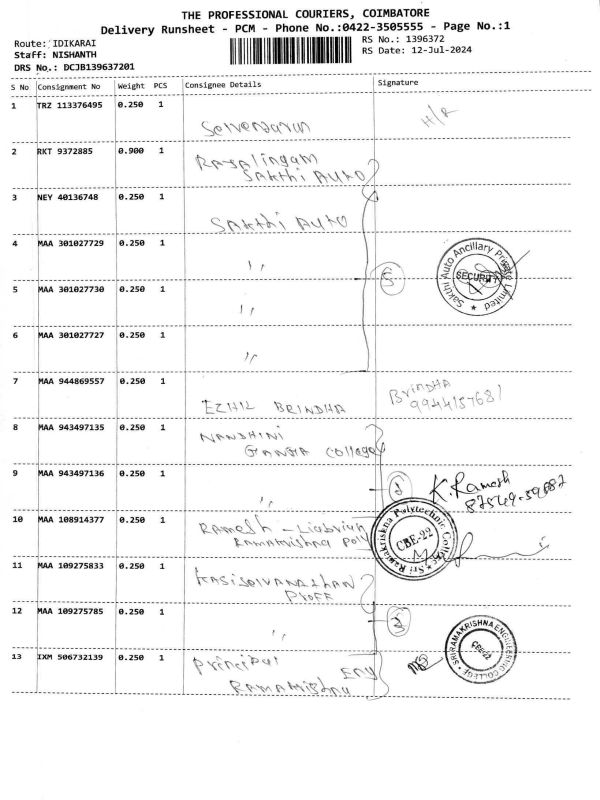 THE PROFESSIONAL COURIERS, COIMBATORE
Delivery Runsheet - PCM - Phone No.:0422-3505555 - Page No.:1
Route: IDIKARAI
Staff: NISHANTH
DRS No.: DCJB139637201
RS No.: 1396372
RS Date: 12-Jul-2024
S No Consignment No Weight PCS Consignee Details Signature
1 TRZ 113376495 0.250 1 H/R
2 RKT 9372885 0.900 1 Rajalingam
Sakthi Auto
3 NEY 40136748 0.250 1 Sakthi Auto
4 MAA 301027729 0.250 1 ,,
5 MAA 301027730 0.250 1 ,,
6 MAA 301027727 0.250 1 ,,
5
Sakthi Auto Ancillary Private Limited
SECURITY
7 MAA 944869557 0.250 1 EZHIL BRINDHA
BRINDHA
9944157681
8 MAA 943497135 0.250 1 NANDHINI
GANGA College
9 MAA 943497136 0.250 1 ,,
K. Ramesh
87549-59687
10 MAA 108914377 0.250 1 Ramesh -
Ramakrishna Poly
Sri Ramakrishna Polytechnic College
CBE-22
11 MAA 109275833 0.250 1
Proff
12 MAA 109275785 0.250 1 ,,
3
13 IXM 506732139 0.250 1 Principal Eng
Ramakrishna
SRI RAMAKRISHNA ENGINEERING COLLEGE
CBE-22